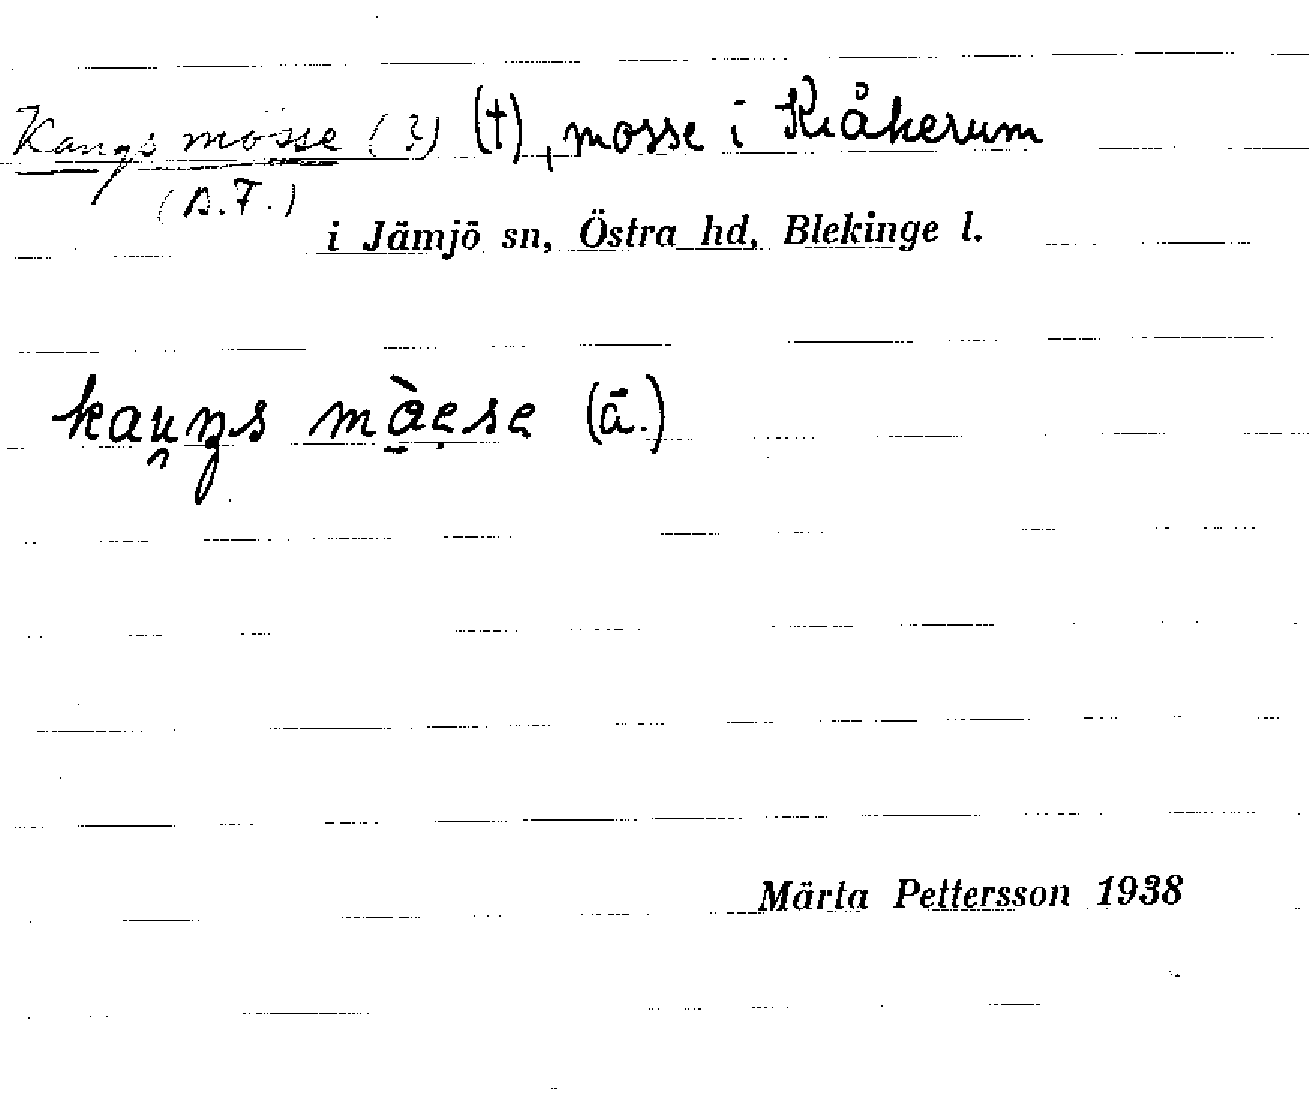 Kangs mosse (?) (†), mosse i Kråkerum
(D.F.)
i Jämjö sn, Östra hd, Blekinge l.
kau̯ŋs màese (ā.)
Märta Pettersson 1938